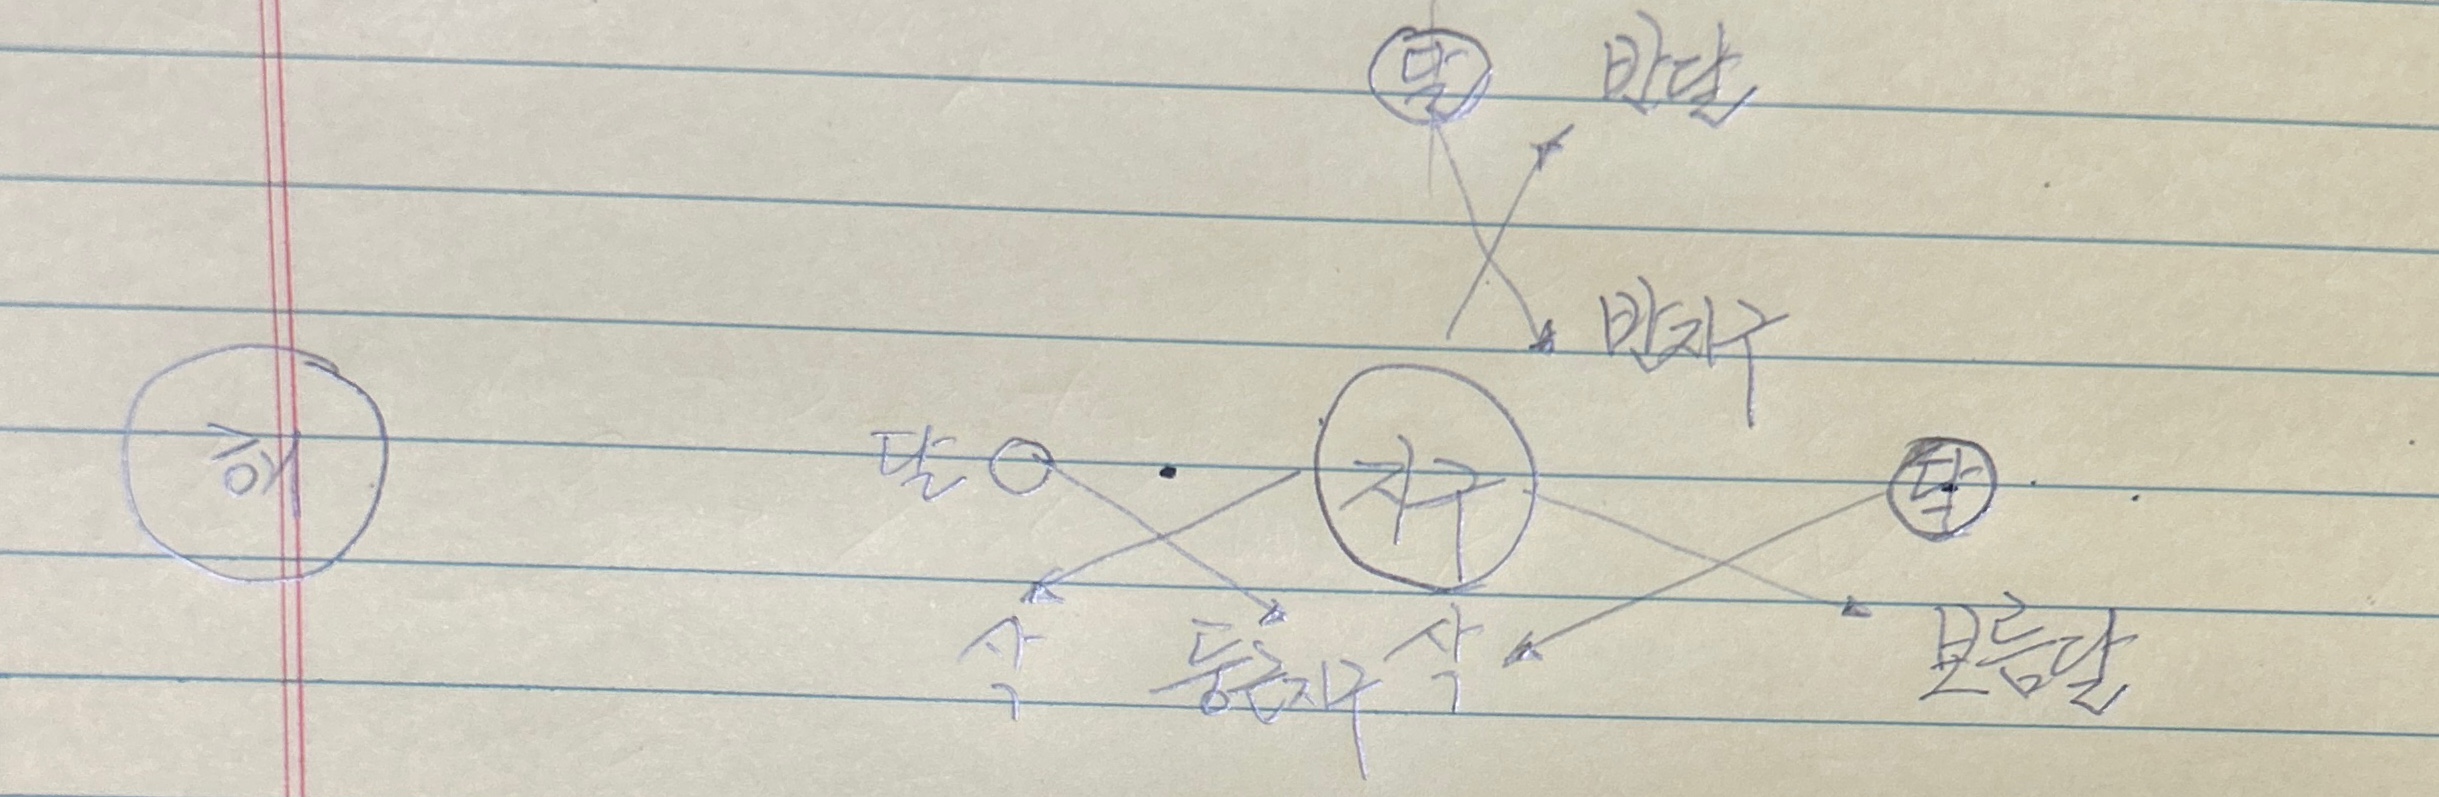 달 반달
반지구
해 달 지구 달
삭 둥근지구 삭 보름달